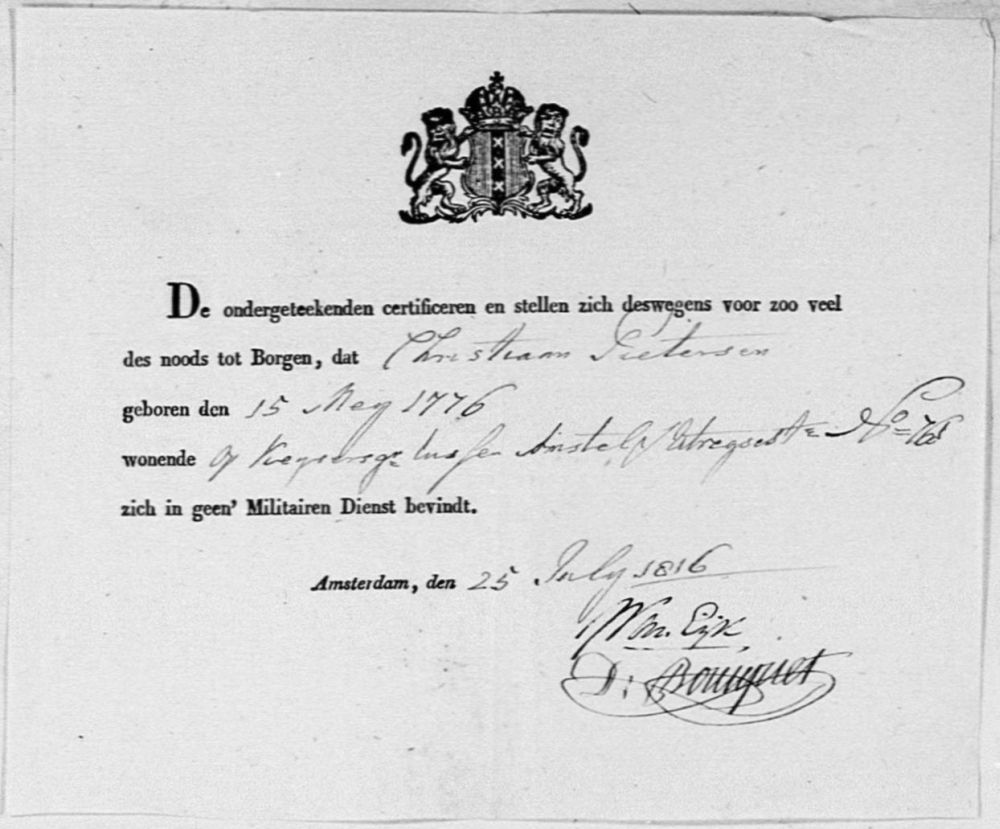 De ondergeteekenden certificeren en stellen zich deswegens voor zoo veel
des noods tot Borgen, dat Christiaan Pietersen
geboren den 15 Mey 1776
wonende op Keysersgr tussen Amstel & Utregsestr No 768
zich in geen' Militairen Dienst bevindt.
Amsterdam, den 25 July 1816
W van Eijk
D: Bouquet